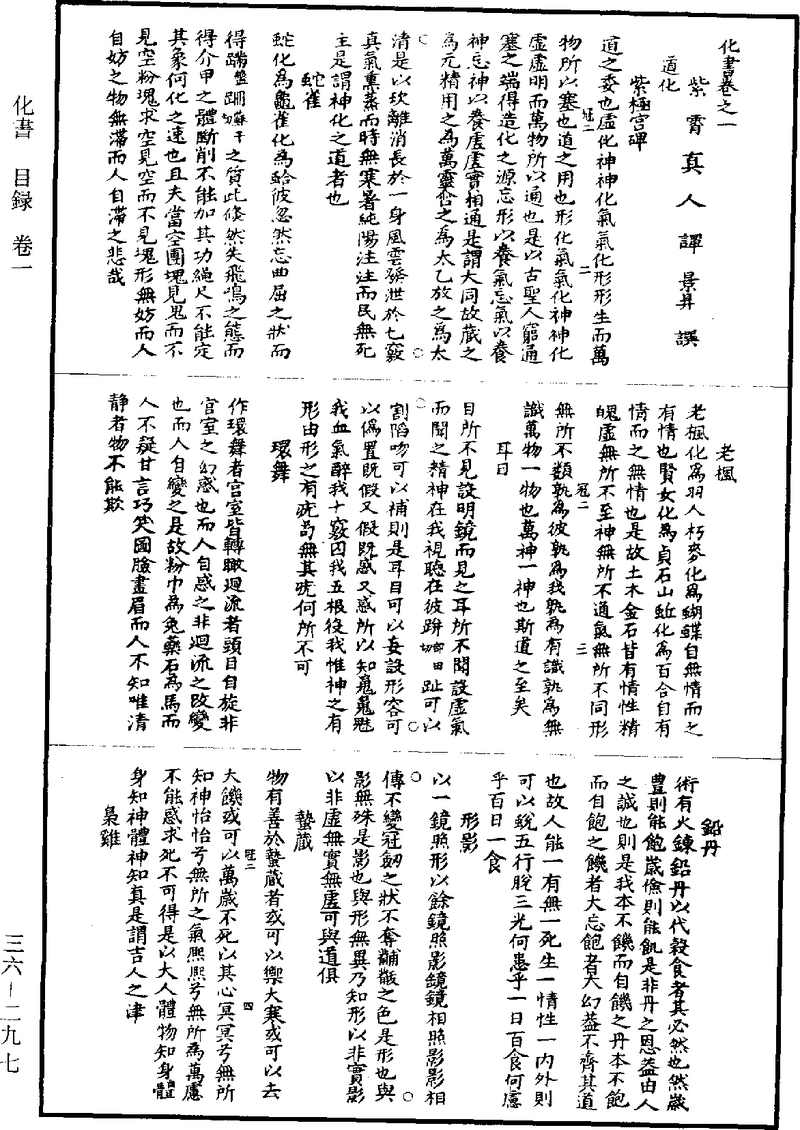 化書卷之一
紫霄真人譚景昇撰
道化
紫極宮碑
道之委也虛化神神化氣氣化形形生而萬
物所以塞也道之用也形化氣氣化神神化
虛虛明而萬物所以通也是以古聖人窮通
塞之端得造化之源忘形以養氣忘氣以養
神忘神以養虛虛實相通是謂大同故藏之
為元精用之為萬靈含之為太乙放之為太
清是以坎離消長於一身風雲發泄於七竅
真氣熏蒸而時無寒暑純陽注注而民無死
主是謂神化之道者也
蛇雀
蛇化為龜雀化為蛤彼忽然忘曲屈之狀而
得蹣盤跚之質此倏然失飛鳴之態而
得介甲之體斷削不能加其功繩尺不能定
其象何化之速也且夫當空團塊見塊而不
見空粉塊求空見空而不見塊形無妨而人
自妨之物無滯而人自滯之悲哉
老楓
老楓化為羽人朽麥化為蝴蝶自無情而之
有情也賢女化為貞石山蚯化為百合自有
情而之無情也是故土木金石皆有情性精
魄虛無所不至神無所不通氣無所不同形
無所不類孰為彼孰為我孰為有識孰為無
識萬物一物也萬神一神也斯道之至矣
耳目
目所不見設明鏡而見之耳所不聞設虛氣
而聞之精神在我視聽在彼跰趾可以
割陷吻可以補則是耳目可以妄設形容可
以偽置既假又假既惑又惑所以知魂魄魅
我血氣醉我七竅囚我五根役我惟神之有
形由形之有疣苟無其疣何所不可
環舞
作環舞者宮室皆轉瞰迴流者頭目自旋非
宮室之幻惑也而人自惑之非迴流之改變
也而人自變之是故粉巾為兔藥石為馬而
人不疑甘言巧笑圖臉畫眉而人不知唯清
靜者物不能欺
鉛丹
術有火鍊鉛丹以代穀食者其必然也然歲
豐則能飽歲儉則能飢是非丹之恩蓋由人
之誠也則是我本不饑而自饑之丹本不飽
而自飽之饑者大忘飽者大幻蓋不齊其道
也故人能一有無一死生一情性一內外則
可以蛻五行脫三光何患乎一日百食何慮
乎百日一食
形影
以一鏡照形以餘鏡照影鏡鏡相照影影相
傳不變冠劒之狀不奪黼黻之色是形也與
影無殊是影也與形無異乃知形以非實影
以非虛無實無虛可與道俱
蟄藏
物有善於蟄藏者或可以禦大寒或可以去
大饑或可以萬歲不死以其心冥冥兮無所
知神怡怡兮無所之氣熙熙兮無所為萬慮
不能惑求死不可得是以大人體物知身體
身知神體神知真是謂吉人之津
梟雞
化書 目録 卷一
三六—二九七